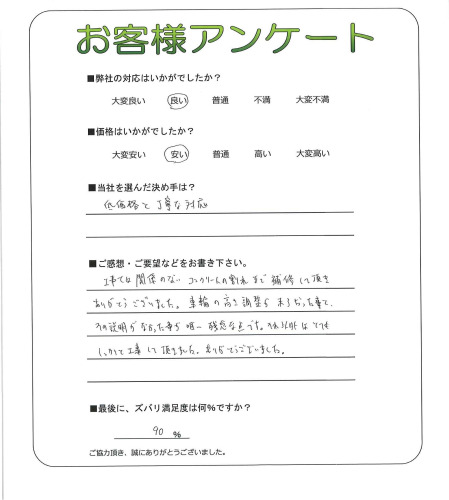 お客様アンケート
■弊社の対応はいかがでしたか？
大変良い 良い 普通 不満 大変不満
■価格はいかがでしたか？
大変安い 安い 普通 高い 大変高い
■当社を選んだ決め手は？
低価格と丁寧な対応
■ご感想・ご要望などをお書き下さい。
工事では関係のない コンクリートの割れまで補修して頂き
ありがとうございました。車輪の高さ調整が 出来なかった事と、
その説明が なかった事が唯一 残念な点です。それ以外は とても
しっかりと工事して頂きました。ありがとうございました。
■最後に、ズバリ満足度は何％ですか？
90 ％
ご協力頂き、誠にありがとうございました。